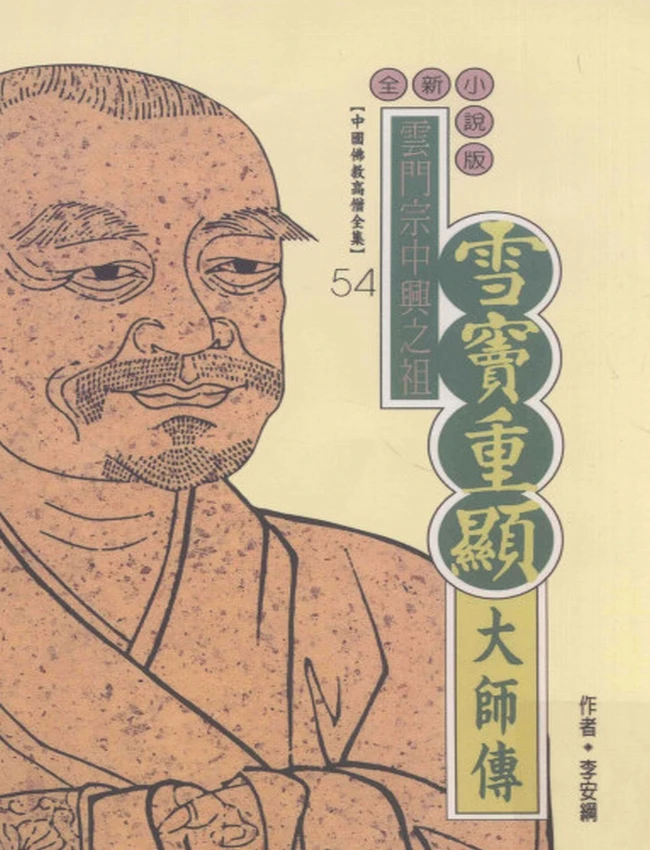 全新小說版
雪竇重顯
大師傳
雲門宗中興之祖
【中國佛教高僧全集】
54
作者◆李安綱